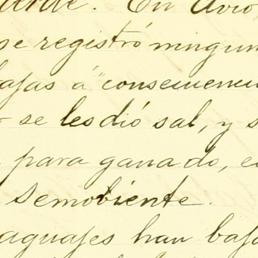 verde. En Avio
se registró ningun
bajas á "consecuenc
se les dió sal, y s
para ganado, e
Semobiente.
aguajes han baja